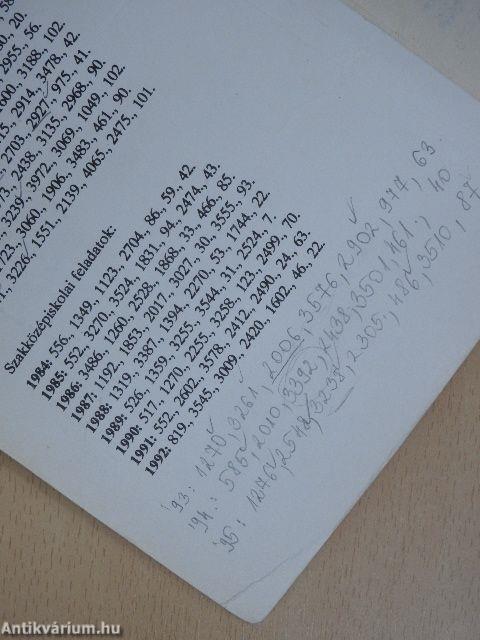 58
20.
2955., 56.
1600., 3188., 102.
2914., 3478., 42.
2703., 2927., 975., 41.
2438., 3135., 2968., 90.
3239., 3972., 3069., 1049., 102.
3060., 1906., 3483., 461., 90.
3226., 1551., 2139., 4065., 2475., 101.
Szakközépiskolai feladatok:
1984: 556., 1349., 1123., 2704., 86., 59., 42.
1985: 552., 3270., 3524., 1831., 94., 2474., 43.
1986: 3486., 1260., 2528., 1868., 33., 466., 85.
1987: 1192., 1853., 2017., 3027., 30., 3555., 93.
1988: 1319., 3387., 1394., 2270., 53., 1744., 22.
1989: 526., 1359., 3255., 3544., 31., 2524., 7.
1990: 517., 1270., 2255., 3258., 123., 2499., 70.
1991: 552., 2602., 3578., 2412., 2490., 24., 63.
1992: 819., 3545., 3009., 2420., 1602., 46., 22.
'93: 1270, 3261, 2006, 3576, 2902, 977, 63.
'94.: 586, 2010, 3392, 2438, 3501, 461, 40
'95: 1276, 2542, 3238, 2305, 486, 3510, 87
Antikvárium.hu